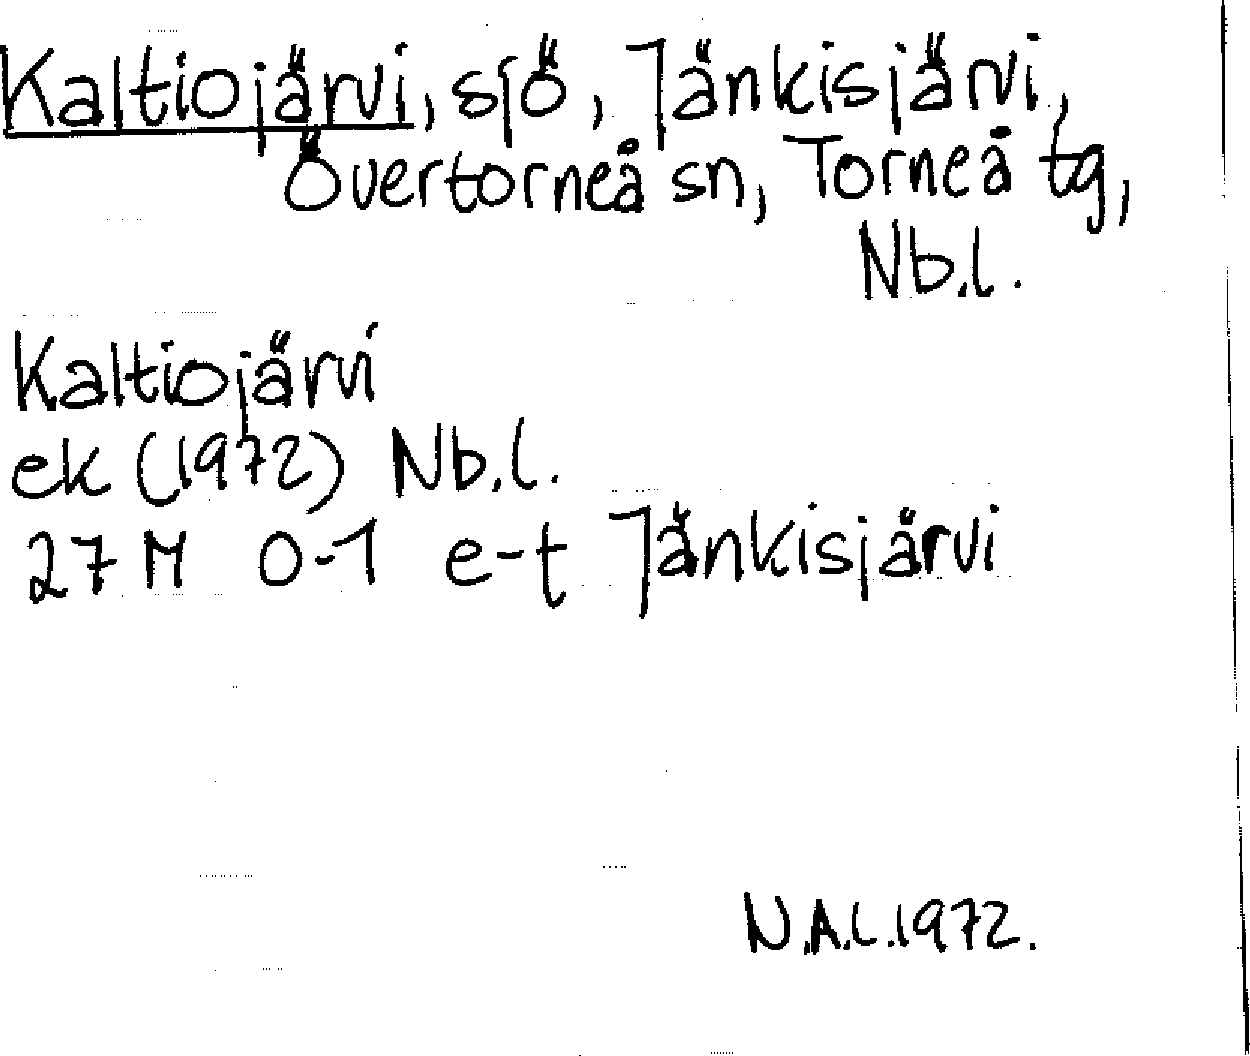 Kaltiojärvi, sjö, Jänkisjärvi,
Övertorneå sn, Torneå tg,
Nb.l.
Kaltiojärvi
ek (1972) Nb.l.
27 M 0-1 e-t Jänkisjärvi
N.A.L.1972.